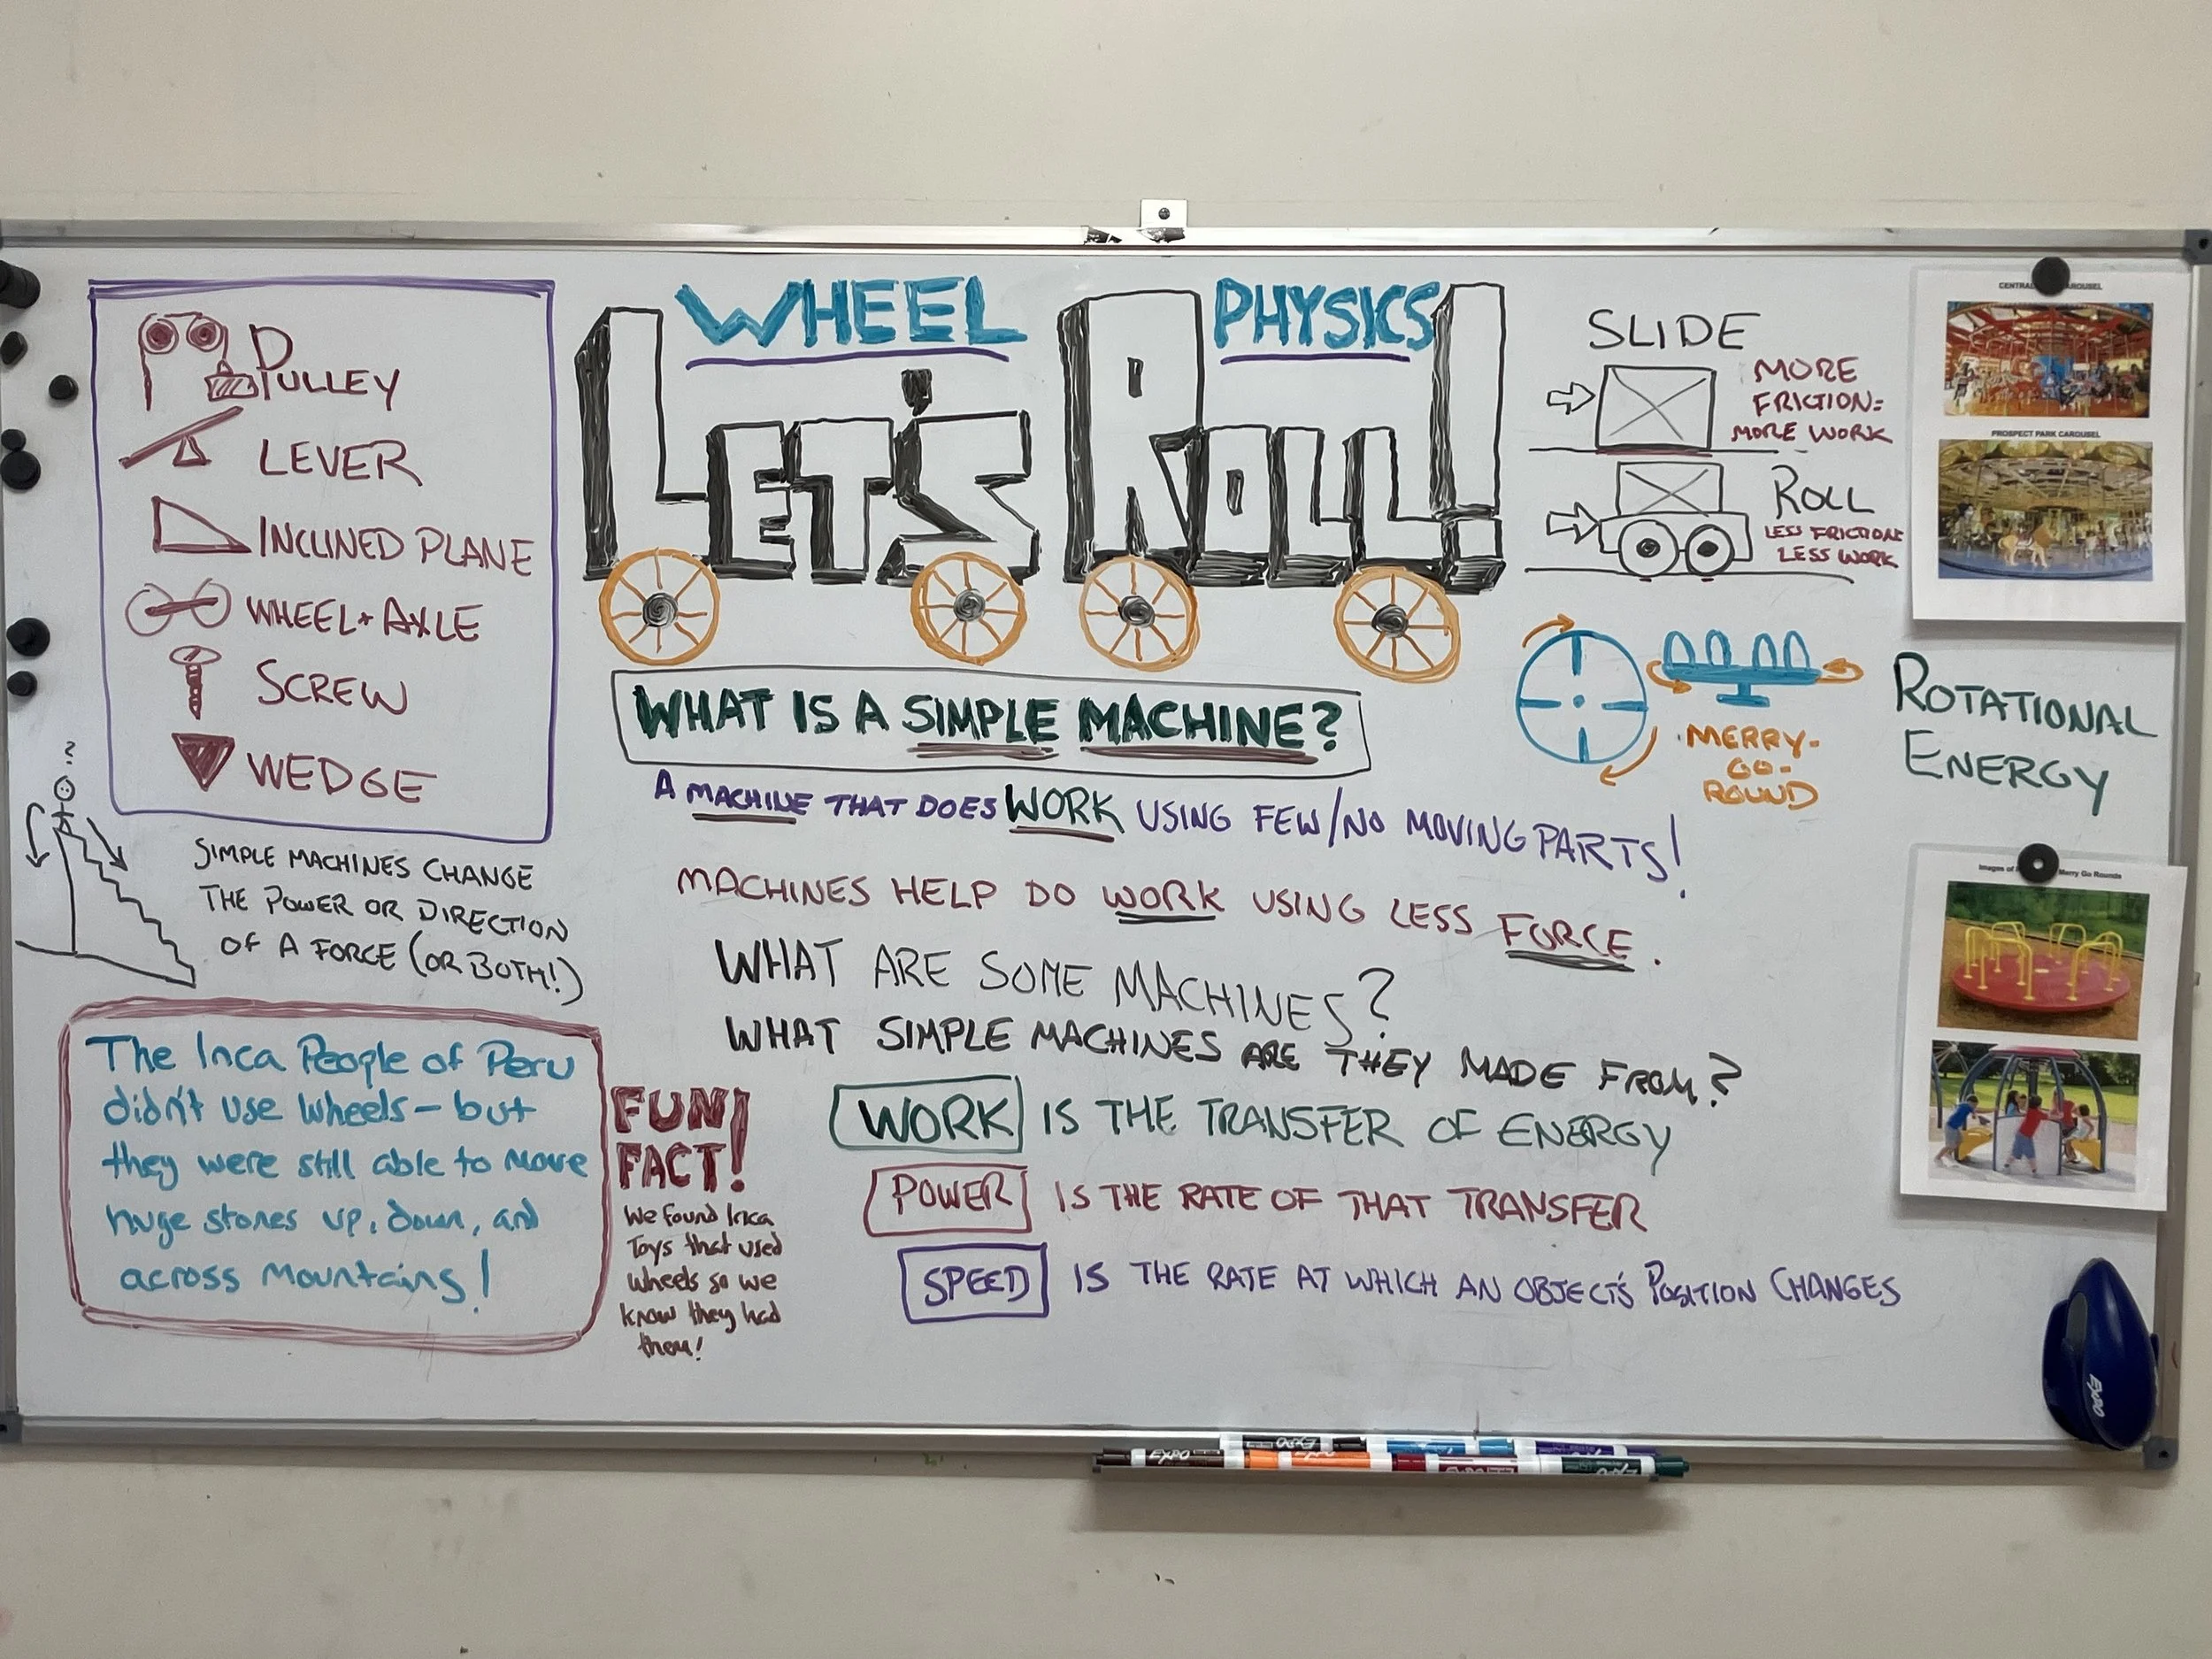 PULLEY
LEVER
INCLINED PLANE
WHEEL + AXLE
SCREW
WEDGE
?
SIMPLE MACHINES CHANGE
THE POWER OR DIRECTION
OF A FORCE (OR BOTH!)
The Inca People of Peru
didn't use wheels – but
they were still able to move
huge stones up, down, and
across mountains!
FUN
FACT!
We found Inca
Toys that used
wheels so we
know they had
them!
WHEEL PHYSICS
LET'S ROLL!
WHAT IS A SIMPLE MACHINE?
A MACHINE THAT DOES WORK USING FEW/NO MOVING PARTS!
MACHINES HELP DO WORK USING LESS FORCE.
WHAT ARE SOME MACHINES?
WHAT SIMPLE MACHINES ARE THEY MADE FROM?
WORK IS THE TRANSFER OF ENERGY
POWER IS THE RATE OF THAT TRANSFER
SPEED IS THE RATE AT WHICH AN OBJECT'S POSITION CHANGES
SLIDE
MORE
FRICTION=
MORE WORK
ROLL
LESS FRICTION=
LESS WORK
MERRY-
GO-
ROUND
ROTATIONAL
ENERGY
PROSPECT PARK CAROUSEL
Images of
Merry Go Rounds
EXPO
EXPO
EXPO
EXPO